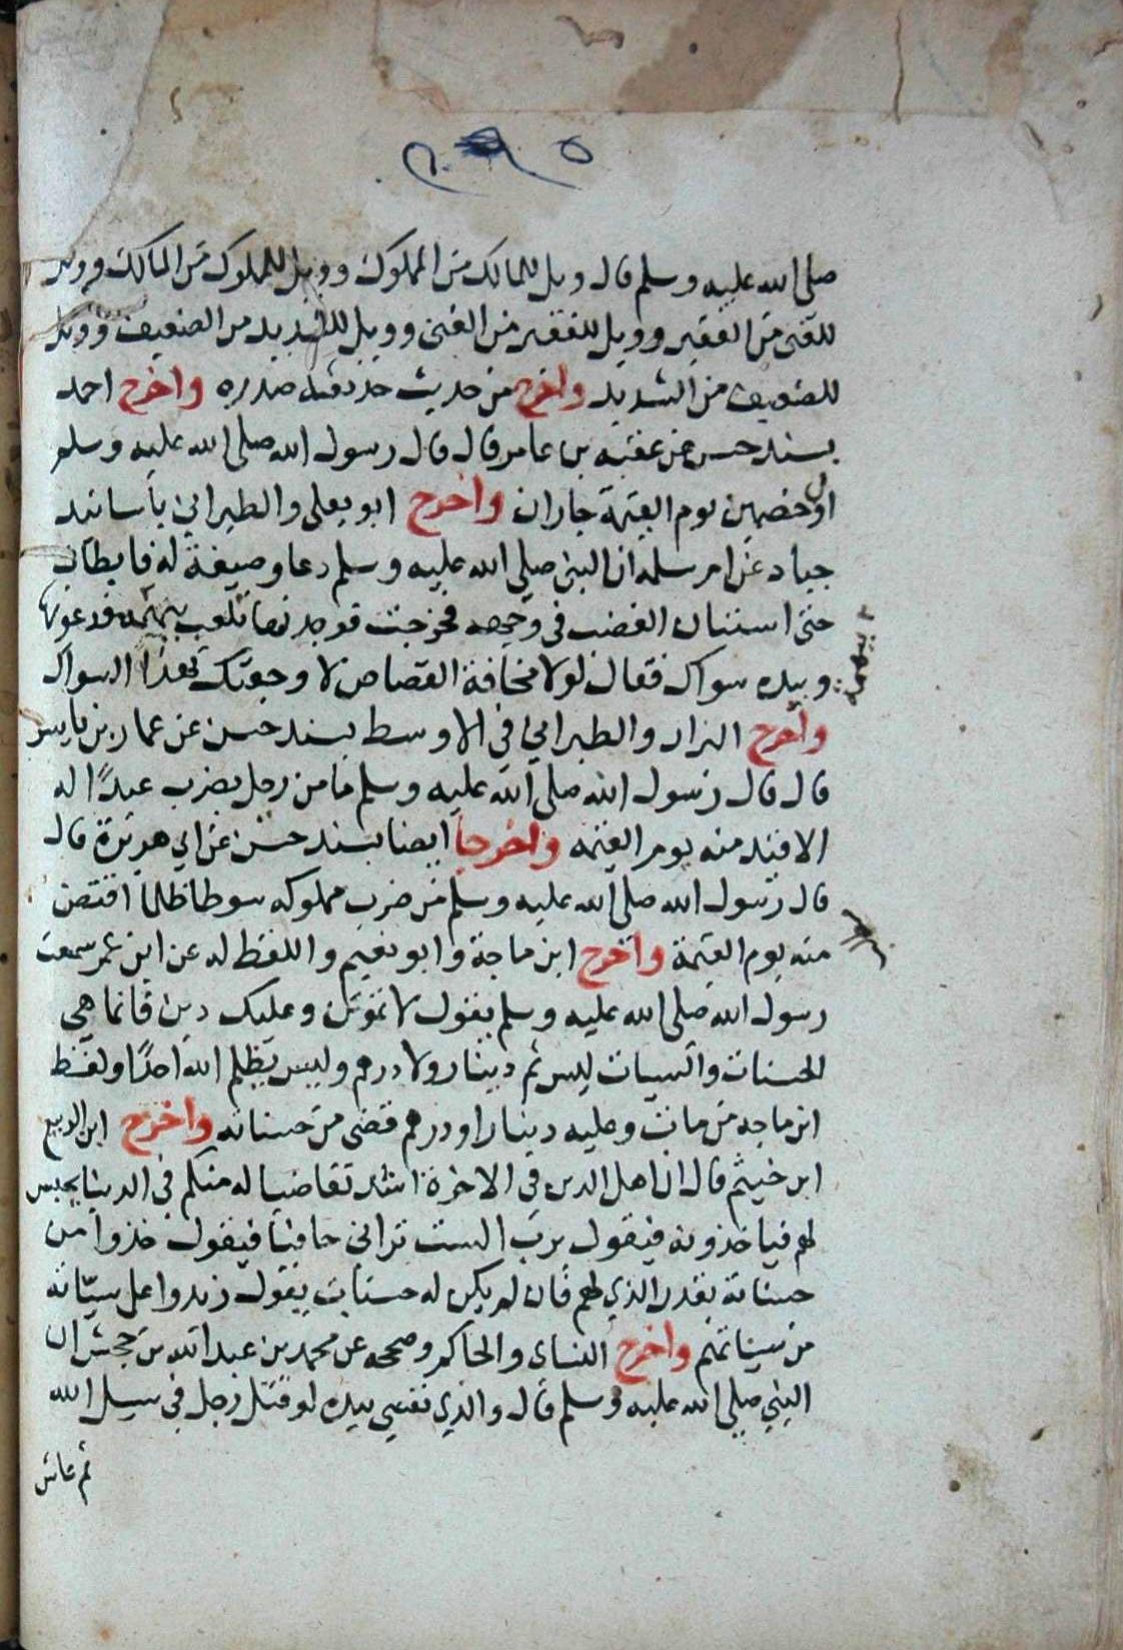 صلى الله عليه وسلم قال ويل للمالك من المملوك وويل للملوك من المالك وويل
للغنى من الفقير وويل للفقير من الغنى وويل للشديد من الضعيف وويل
للضعيف من الشديد واخرج من حديث حذيفة صدره واخرج احمد
بسند حسن عن عقبه بن عامر قال قال رسول الله صلى الله عليه وسلم
اول خصمين يوم القيمة جاران واخرج ابو يعلى والطبراني بأسانيد
جياد عن ام سلمه ان النبي صلى الله عليه وسلم دعا وصيفة له فابطات
حتى استنان الغضب في وجهه فخرجت فوجدتها تلعب فدعوتها
وبيده سواك فقال لولا مخافة القصاص لا وجعتك بهذا السواك
واخرج البزار والطبراني في الاوسط بسند حسن عن عمار بن ياسر
قال قال رسول الله صلى الله عليه وسلم ما من رجل يضرب عبدًا له
الا قيد منه يوم القيمه واخرجا ايضا بسند حسن عن ابي هريرة قال
قال رسول الله صلى الله عليه وسلم من ضرب مملوكه سوطا ظلما اقتص
منه يوم القيمة واخرج ابن ماجة وابو نعيم واللفظ له عن ابن عمر سمعت
رسول الله صلى الله عليه وسلم يقول لا تموتن وعليك دين فانما هي
الحسنات والسيات ليس ثم دينار ولا درهم وليس يظلم الله احدًا ولفظ
ابن ماجه من مات وعليه دينار او درهم قضى من حسناته واخرج ابن الربيع
ابن خيثم قال ان اهل الدين في الاخرة اشد تقاضيا له منكم في الدنيا يحبس
لهم فياخذونه فيقول يرب الست ترانى حافيا فيقول خذوا من
حسناته بقدر الذي لهم فان لم يكن له حسنات يقول زيدوا على سيّاته
من سيئاتهم واخرج النساى والحاكم وصححه عن محمد بن عبد الله بن جحش ان
النبي صلى الله عليه وسلم قال والذي نفسي بيده لو قتل رجل في سبيل الله
ثم عاش